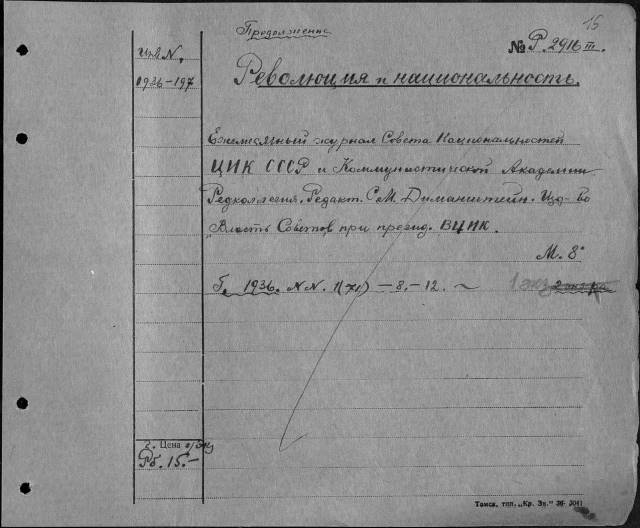 15
Продолжение
№ Р. 2916 III.
Революция и национальность.
1936-197
Ежемесячный журнал Совета Национальностей
ЦИК СССР и Коммунистической Академии
Редколлегия. Редакт. С.М. Диманштейн. Изд-во
Власть Советов при презид. ВЦИК.
М. 8°
Г. 1936. N.N. 1(71) – 8. – 12. ~ 1 экз.
Цена
Рб. 15.–
Томск, тип. „Кр. Зн." 36- 3041